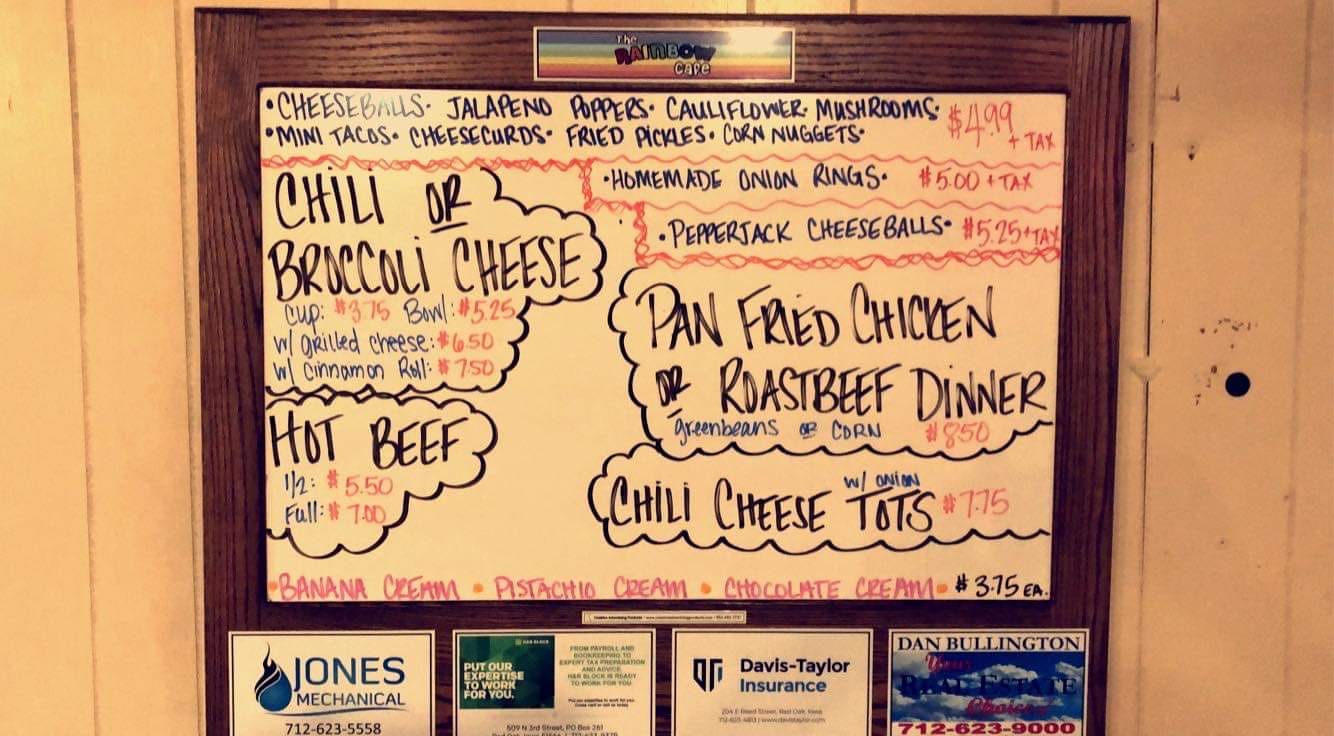 The
RAINBOW
CAFE
•CHEESEBALLS• JALAPENO POPPERS• CAULIFLOWER• MUSHROOMS•
•MINI TACOS• CHEESECURDS• FRIED PICKLES• CORN NUGGETS•
$4.99
+ TAX
•HOMEMADE ONION RINGS• $5.00 + TAX
•PEPPERJACK CHEESEBALLS• $5.25+TAX
CHILI OR
BROCCOLI CHEESE
Cup: $3.75 Bowl: $5.25
w/ grilled cheese: $6.50
w/ Cinnamon Roll: $7.50
HOT BEEF
1/2: $5.50
Full: $7.00
PAN FRIED CHICKEN
OR ROASTBEEF DINNER
greenbeans OR CORN $8.50
CHILI CHEESE TOTS $7.75
w/ onion
•BANANA CREAM • PISTACHIO CREAM • CHOCOLATE CREAM• $3.75 EA.
JONES
MECHANICAL
712-623-5558
H&R BLOCK
PUT OUR
EXPERTISE
TO WORK
FOR YOU.
FROM PAYROLL AND
BOOKKEEPING TO
EXPERT TAX PREPARATION
AND ADVICE,
H&R BLOCK IS READY
TO WORK FOR YOU.
509 N 3rd Street, PO Box 261
Davis-Taylor
Insurance
DAN BULLINGTON
Your
REAL ESTATE
Choice!
712-623-9000